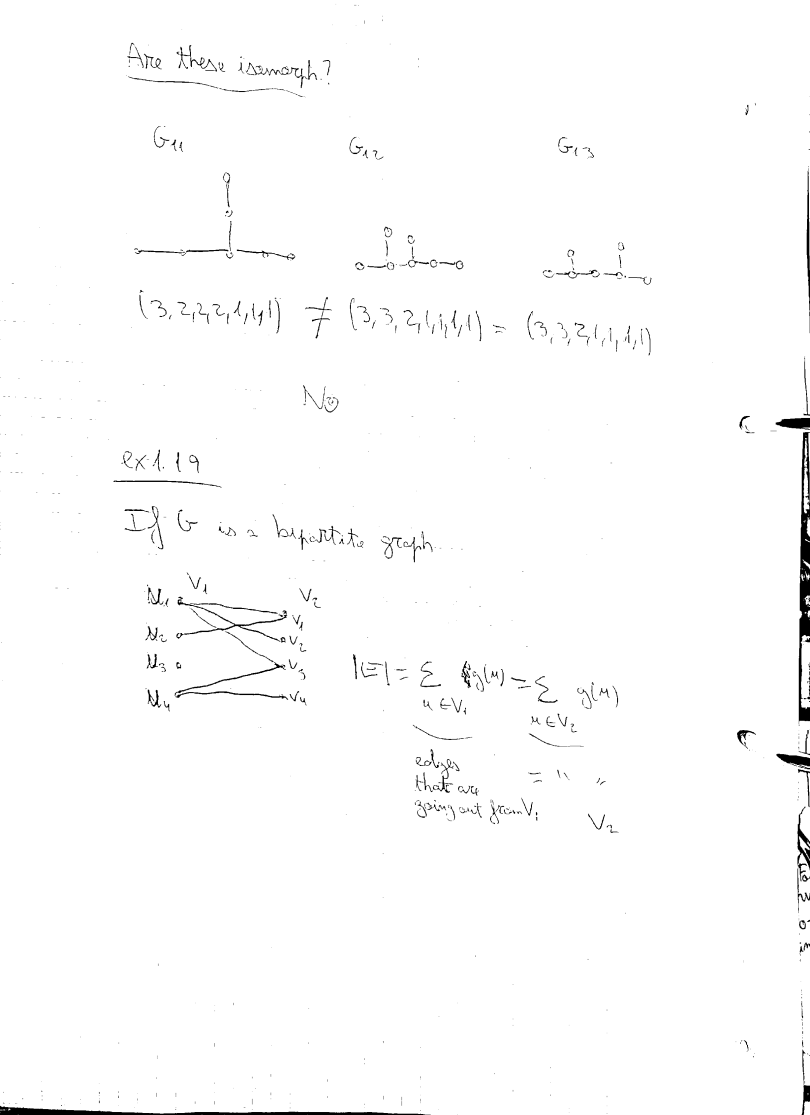 Are these isomorph?
G11 G12 G13
(3,2,2,2,1,1,1) ≠ (3,3,2,1,1,1,1) = (3,3,2,1,1,1,1)
No
ex 1.19
If G is a bipartite graph
V1 V2
u1 v1
u2 v2
u3 v3
u4 v4
|E| = Σ g(u) = Σ g(u)
u∈V1 u∈V2
edges = " "
that are
going out from V1 V2